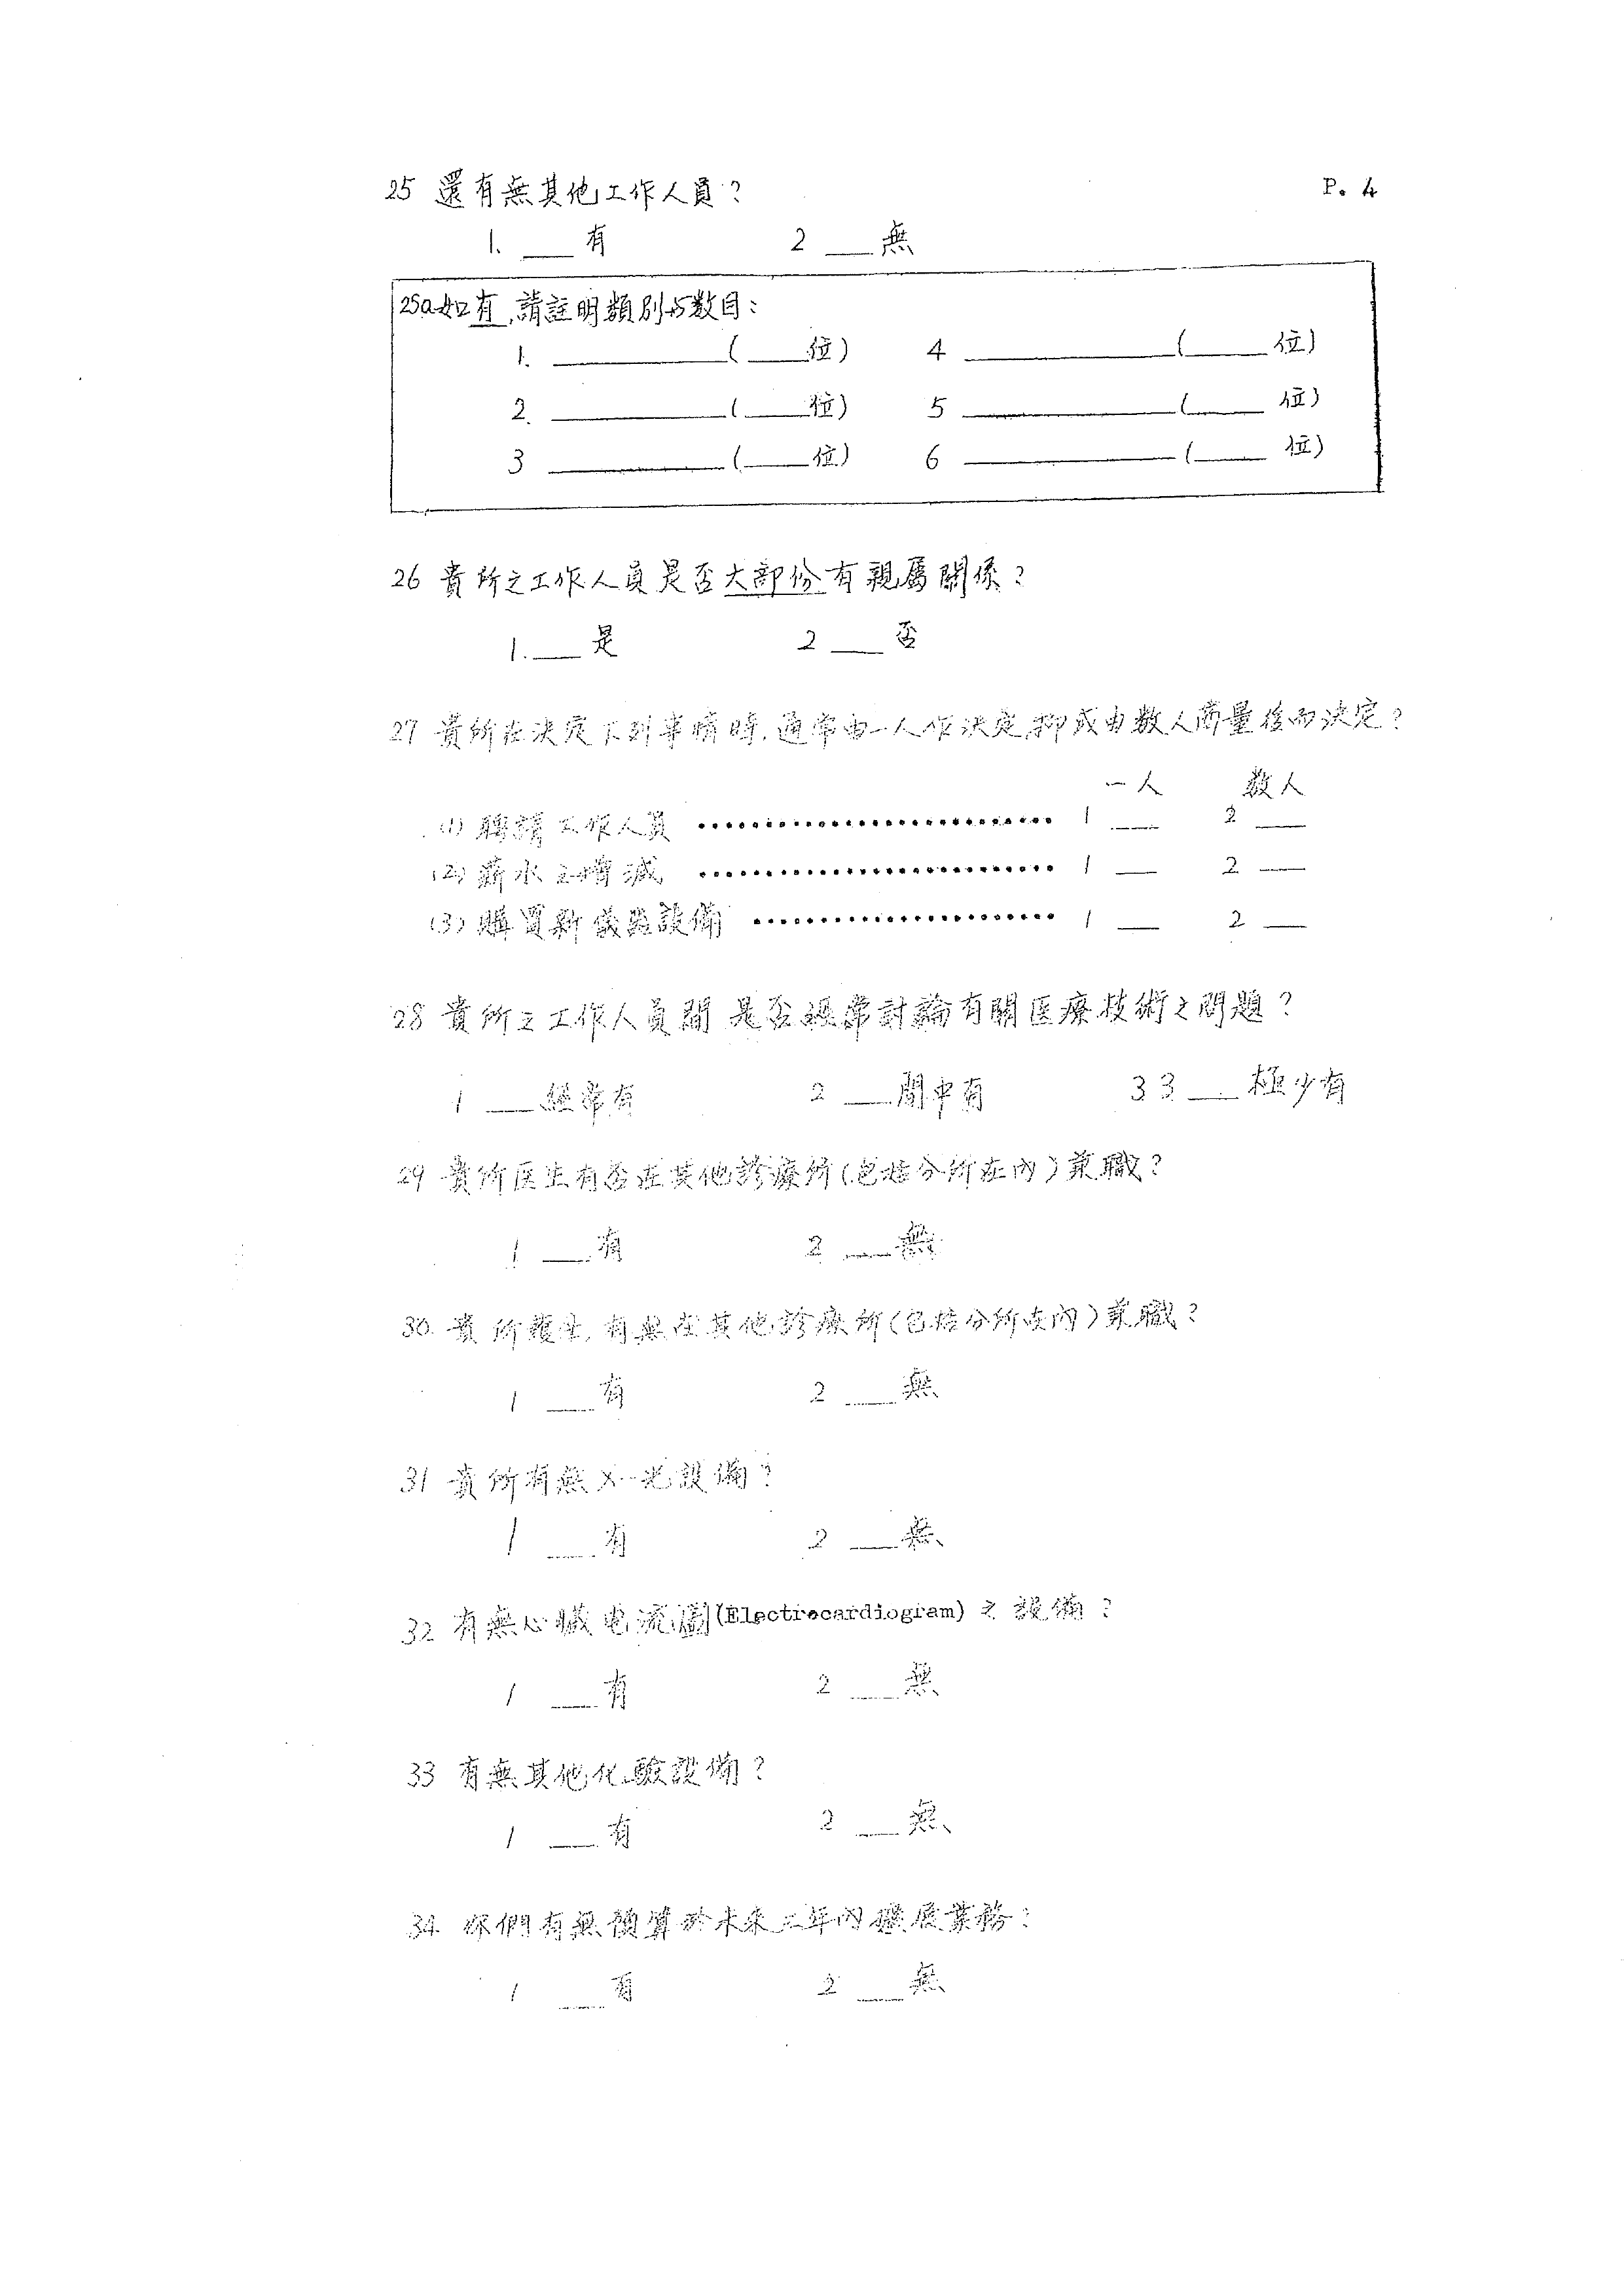 P. 4
25 還有無其他工作人員?
1. ___有 2 ___無
25a如有,請註明類別与数目:
1. ______(___位) 4 ______(___位)
2. ______(___位) 5 ______(___位)
3 ______(___位) 6 ______(___位)
26 貴所之工作人員是否大部份有親屬關係?
1. ___是 2 ___否
27 貴所在決定下列事情時,通常由一人作決定,抑或由数人商量後而決定?
一人 数人
(1) 聘請工作人員 ........................... 1 ___ 2 ___
(2) 薪水之增減 ........................... 1 ___ 2 ___
(3) 購買新儀器設備 ....................... 1 ___ 2 ___
28 貴所之工作人員間是否經常討論有關医療技術之問題?
1 ___經常有 2 ___間中有 3 3 ___極少有
29 貴所医生有否在其他診療所(包括分所在內)兼職?
1 ___有 2 ___無
30. 貴所護士,有無在其他診療所(包括分所在內)兼職?
1 ___有 2 ___無
31 貴所有無X-光設備?
1 ___有 2 ___無
32 有無心臟电流圖(Electrocardiogram)之設備?
1 ___有 2 ___無
33 有無其他化驗設備?
1 ___有 2 ___無
34. 你們有無預算於未來二年內擴展業務?
1 ___有 2 ___無